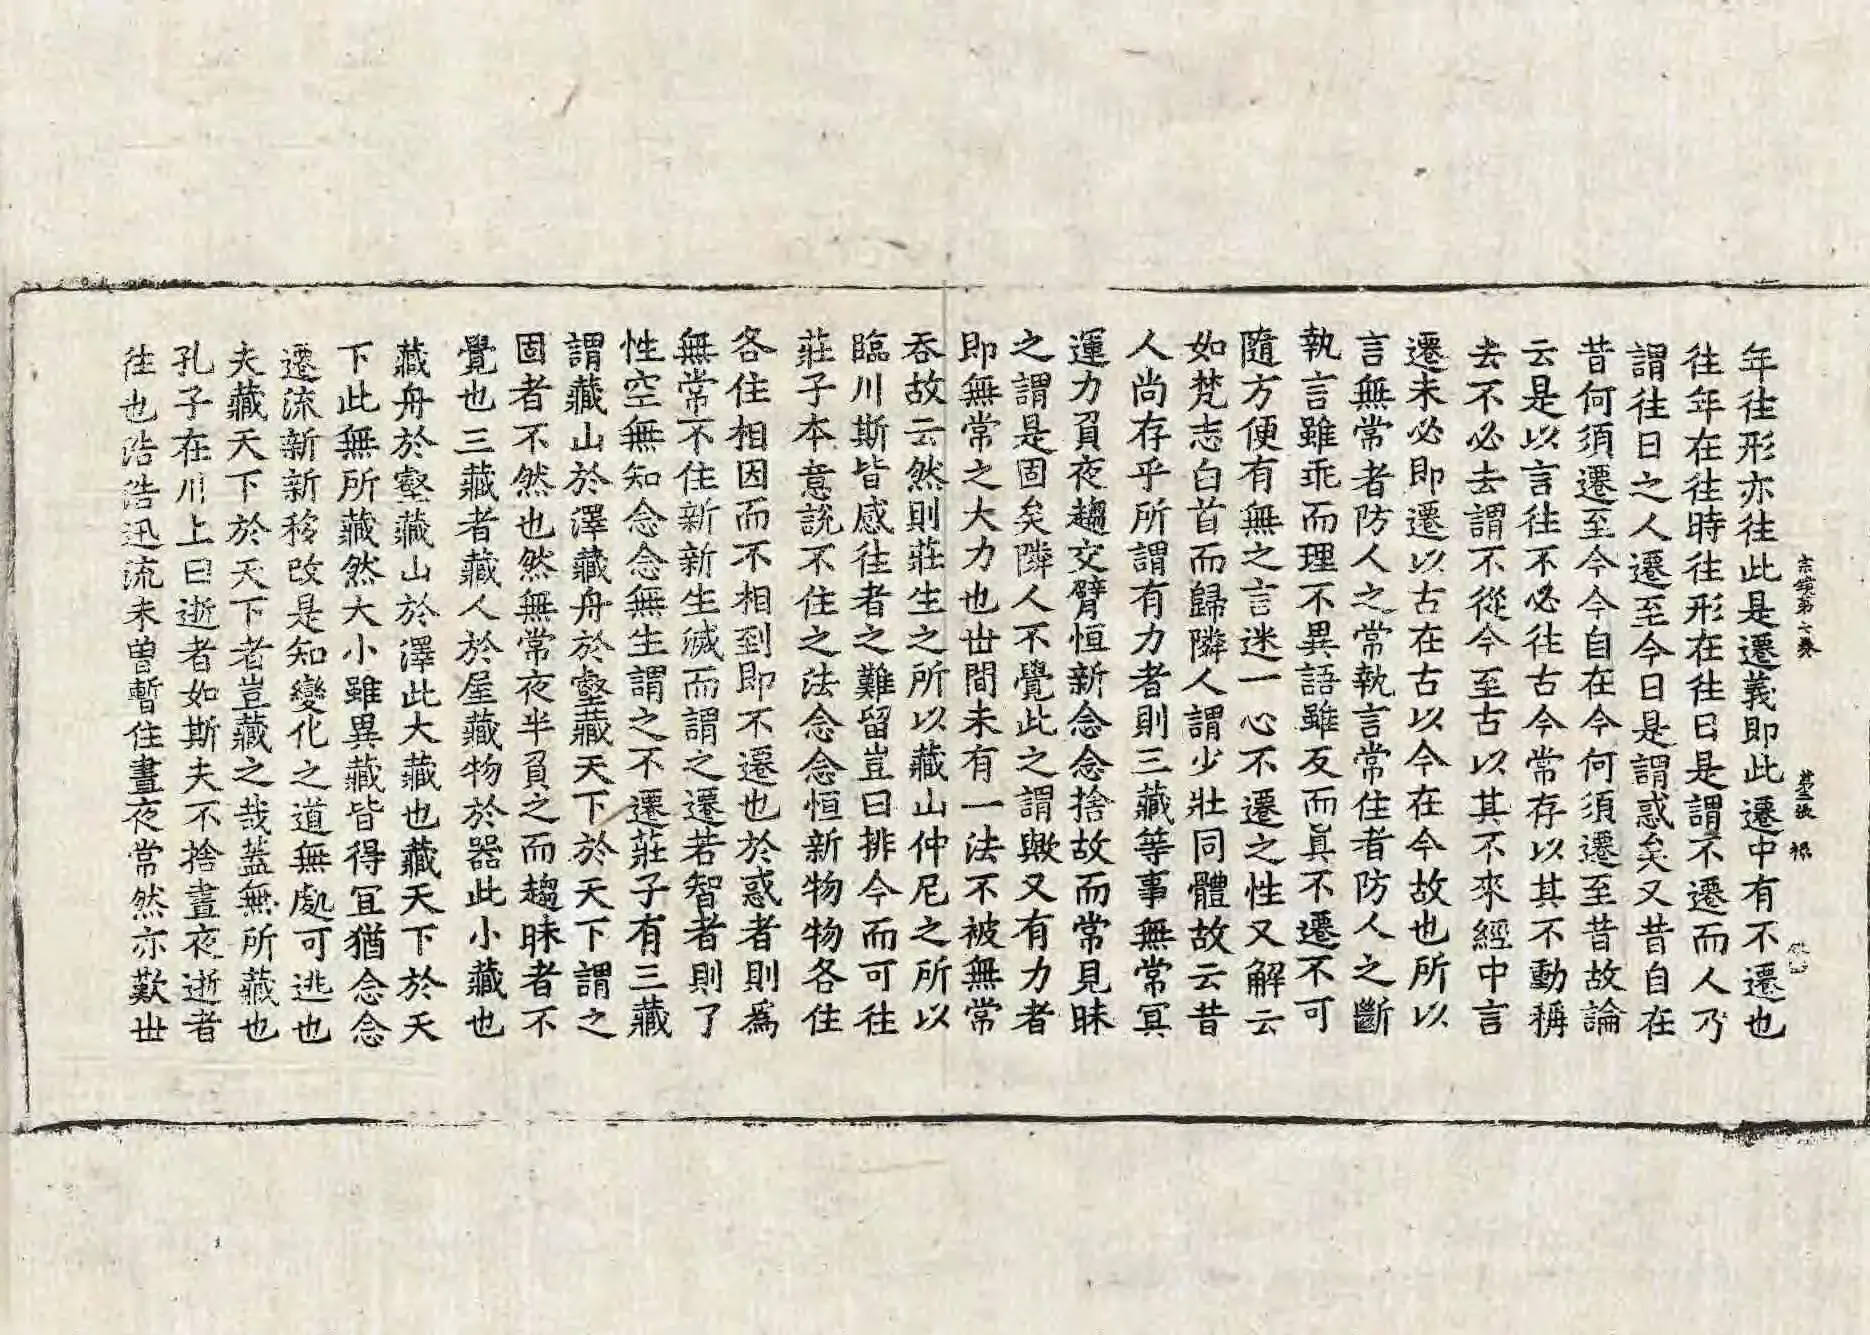 宗鏡第七卷 第三張 禄
年往形亦往此是遷義即此遷中有不遷也
往年在往時往形在往日是謂不遷而人乃
謂往日之人遷至今日是謂惑矣又昔自在
昔何須遷至今今自在今何須遷至昔故論
云是以言往不必往古今常存以其不動稱
去不必去謂不從今至古以其不來經中言
遷未必即遷以古在古以今在今故也所以
言無常者防人之常執言常住者防人之斷
執言雖乖而理不異語雖反而真不遷不可
隨方便有無之言迷一心不遷之性又解云
如梵志白首而歸隣人謂少壯同體故云昔
人尚存乎所謂有力者則三藏等事無常冥
運力負夜趨交臂恒新念念捨故而常見昧
之謂是固矣隣人不覺此之謂歟又有力者
即無常之大力也世間未有一法不被無常
吞故云然則莊生之所以藏山仲尼之所以
臨川斯皆感往者之難留豈曰排今而可往
莊子本意說不住之法念念恒新物物各住
各住相因而不相到即不遷也於惑者則為
無常不住新新生滅而謂之遷若智者則了
性空無知念念無生謂之不遷莊子有三藏
謂藏山於澤藏舟於壑藏天下於天下謂之
固者不然也然無常夜半負之而趨昧者不
覺也三藏者藏人於屋藏物於器此小藏也
藏舟於壑藏山於澤此大藏也藏天下於天
下此無所藏然大小雖異藏皆得冝猶念念
遷流新新移改是知變化之道無處可逃也
夫藏天下於天下者豈藏之哉蓋無所藏也
孔子在川上曰逝者如斯夫不捨晝夜逝者
往也浩浩迅流未曾暫住晝夜常然亦歎世